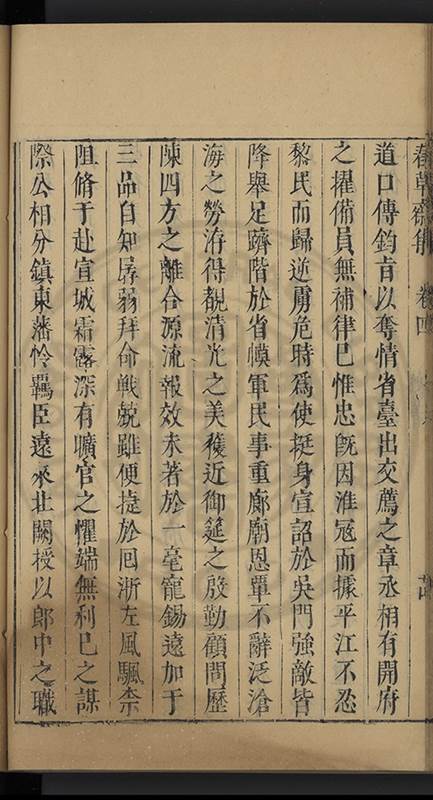 春草齋集 卷四
道口傳鈞旨以奪情省臺出交薦之章丞相有開府
之擢備員無補律已惟忠旣因淮冦而據平江不忍
黎民而歸逆虜危時爲使挺身宣詔於吳門強敵皆
降舉足躋階於省幙軍民事重廊廟恩覃不辭泛滄
海之勞洊得覩清光之美穫近御筵之殷勤顧問歷
陳四方之離合源流報效未著於一毫寵錫遠加于
三品自知孱弱拜命戰兢雖便㨗於回浙左風颿柰
阻脩于赴宣城霜露深有曠官之懼端無利已之謀
際公相分鎮東藩怜羈臣遠來北闕授以郎中之職